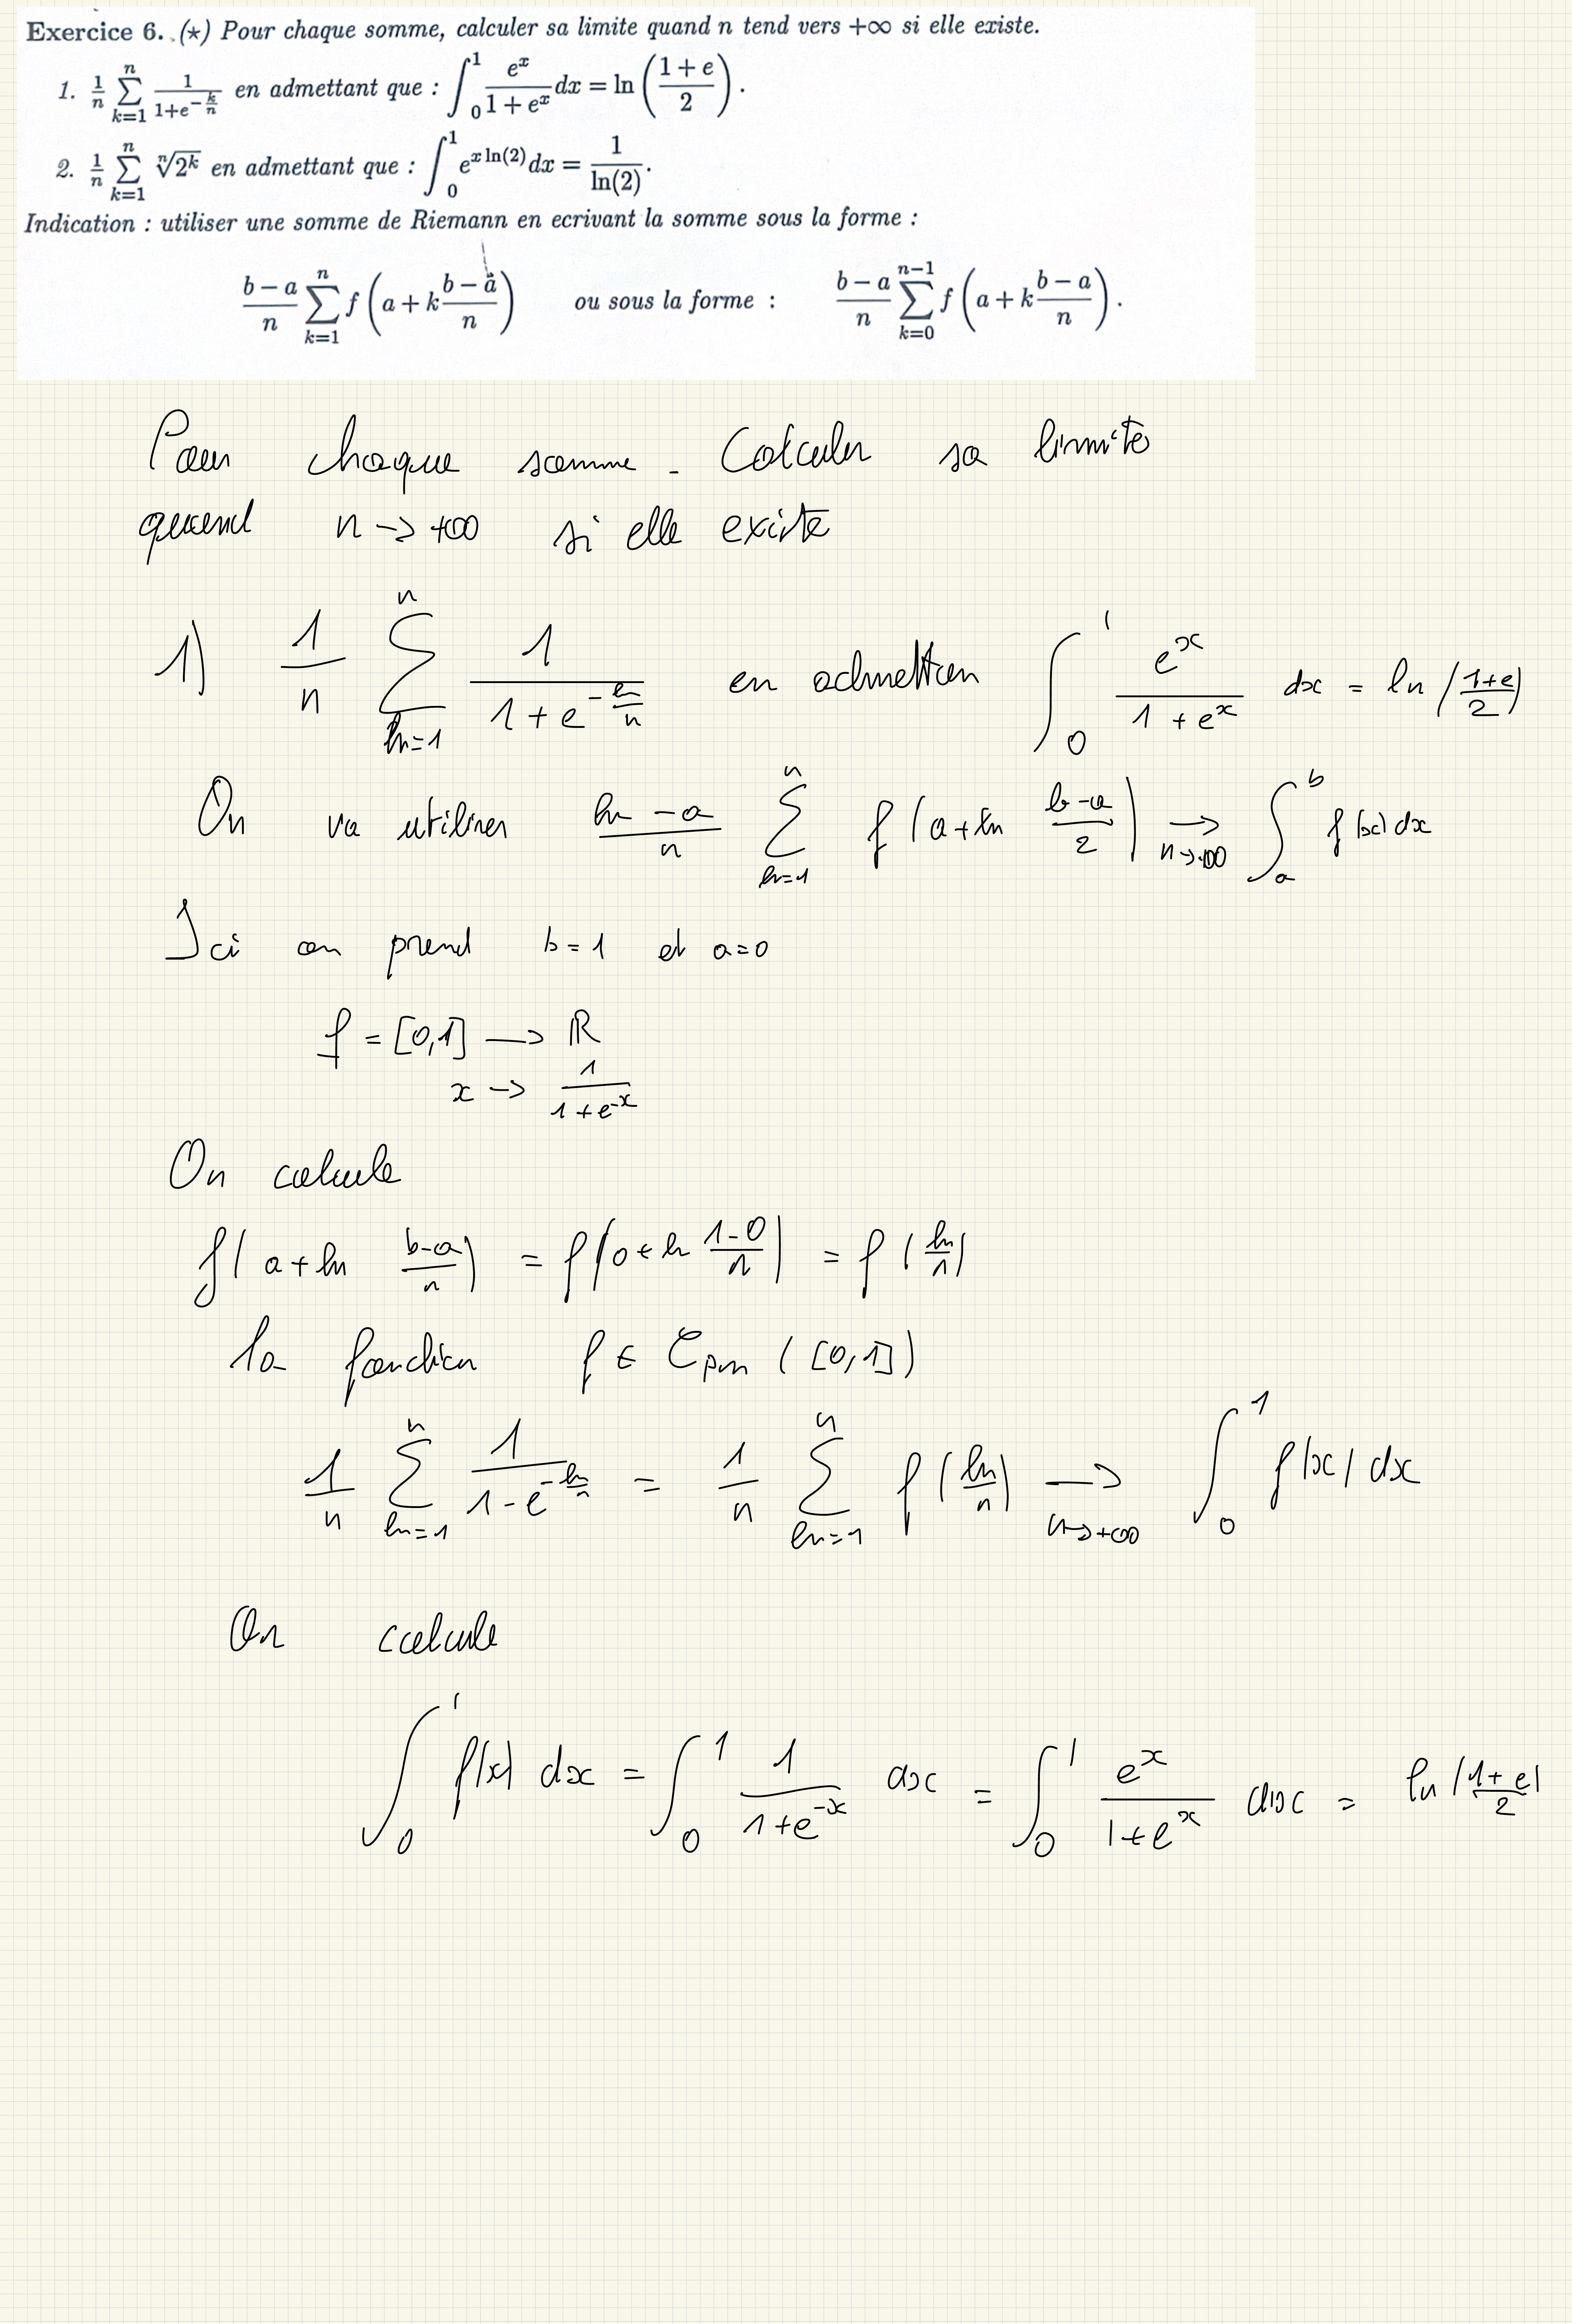 Exercice 6. (⋆) Pour chaque somme, calculer sa limite quand n tend vers +∞ si elle existe.
1. 1/n ∑_{k=1}^{n} 1/(1+e^{-k/n}) en admettant que : ∫_0^1 e^x/(1+e^x) dx = ln((1+e)/2).
2. 1/n ∑_{k=1}^{n} ⁿ√(2^k) en admettant que : ∫_0^1 e^{x ln(2)} dx = 1/ln(2).
Indication : utiliser une somme de Riemann en ecrivant la somme sous la forme :
(b−a)/n ∑_{k=1}^{n} f(a+k (b−a)/n) ou sous la forme : (b−a)/n ∑_{k=0}^{n−1} f(a+k (b−a)/n).
Pour chaque somme . Calculer sa limite
quand n → +∞ si elle existe
1) 1/n ∑_{k=1}^{n} 1/(1+e^{-k/n}) en admettan ∫_0^1 e^x/(1+e^x) dx = ln((1+e)/2)
On va utiliser (b−a)/n ∑_{k=1}^{n} f(a+k (b−a)/2) →_{n→+∞} ∫_a^b f(x) dx
Ici on prend b=1 et a=0
f = [0,1] → ℝ
x → 1/(1+e^{-x})
On calcule
f(a+k (b−a)/n) = f(0+k (1−0)/n) = f(k/n)
la fonction f ∈ C_pm ([0,1])
1/n ∑_{k=1}^{n} 1/(1−e^{-k/n}) = 1/n ∑_{k=1}^{n} f(k/n) →_{n→+∞} ∫_0^1 f(x) dx
On calcule
∫_0^1 f(x) dx = ∫_0^1 1/(1+e^{-x}) dx = ∫_0^1 e^x/(1+e^x) dx = ln((1+e)/2)